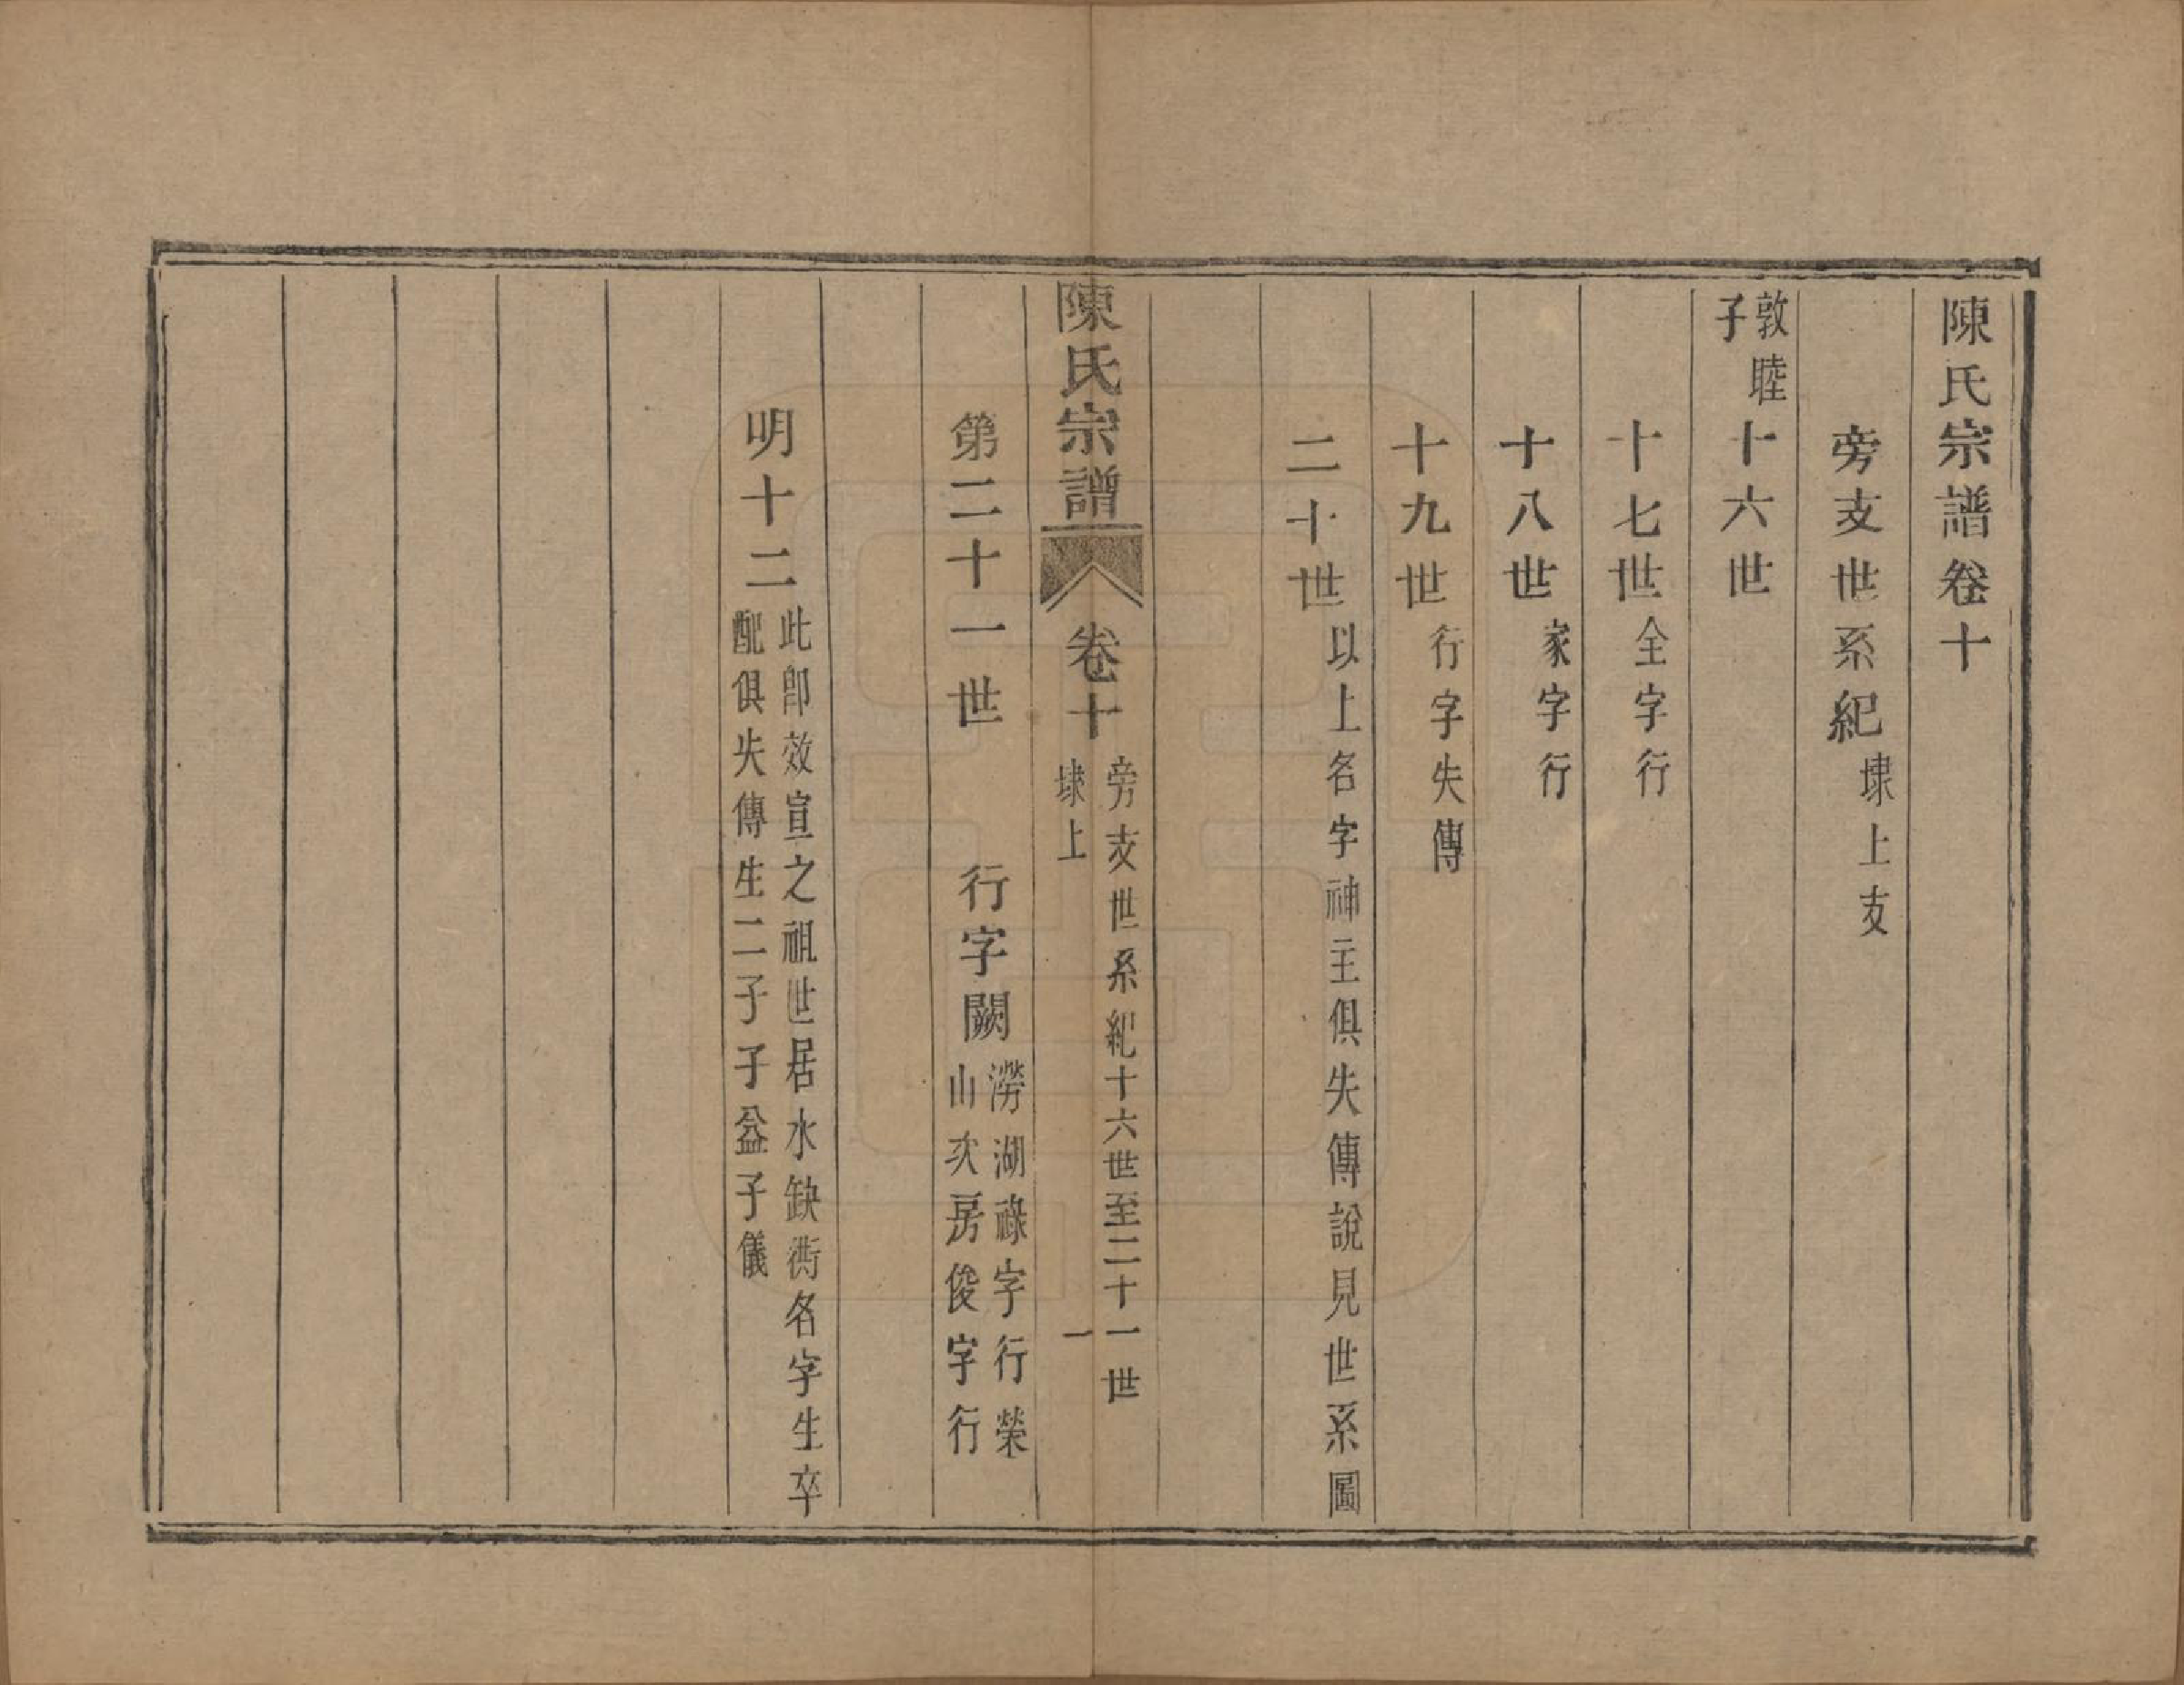 陳氏宗譜卷十
旁支世系紀 埭上支
敦睦
子
十六世
十七世 全字行
十八世 家字行
十九世 行字失傳
二十世 以上名字神主俱失傳說見世系圖
陳氏宗譜 卷十
旁支世系紀十六世至二十一世
埭上 一
第二十一世 行字闕
澇湖祿字行榮
山次房俊字行
明十二
此卽效宣之祖世居水缺衖名字生卒
配俱失傳生二子子益子儀